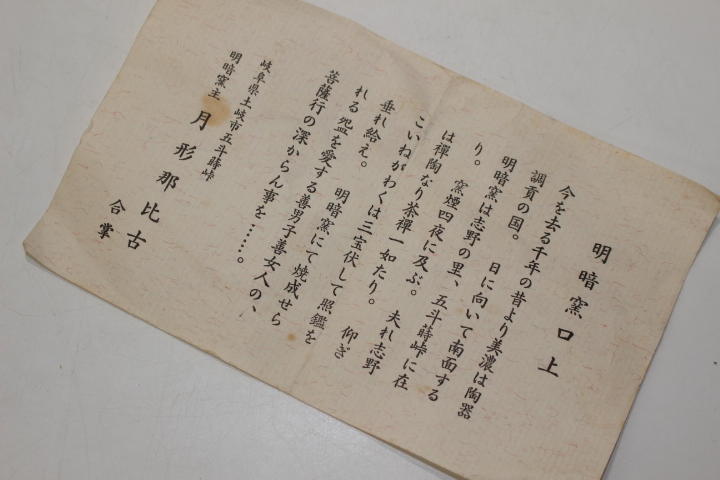 明暗窯口上
今を去る千年の昔より美濃は陶器
調貢の国。　日に向いて南面する
明暗窯は志野の里、五斗蒔峠に在
り。　窯煙四夜に及ぶ。　夫れ志野
は禅陶なり茶禅一如たり。　仰ぎ
こいねがわくは三宝伏して照鑑を
垂れ給え。　明暗窯にて焼成せら
れる盌を愛する善男子善女人の、
菩薩行の深からん事を……。
岐阜県土岐市五斗蒔峠
明暗窯主　月形那比古
合掌